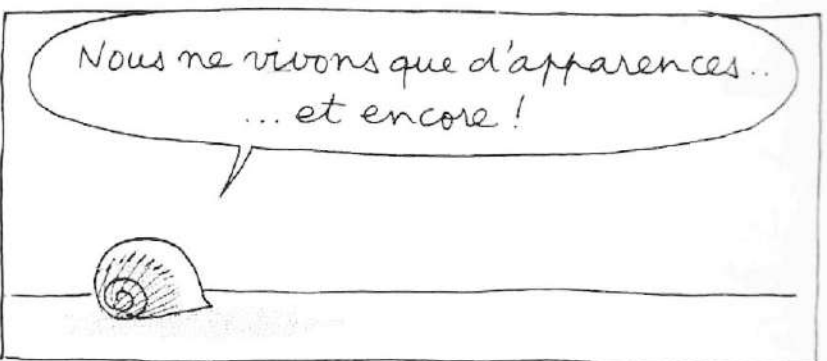 Nous ne vivons que d'apparences..
... et encore !